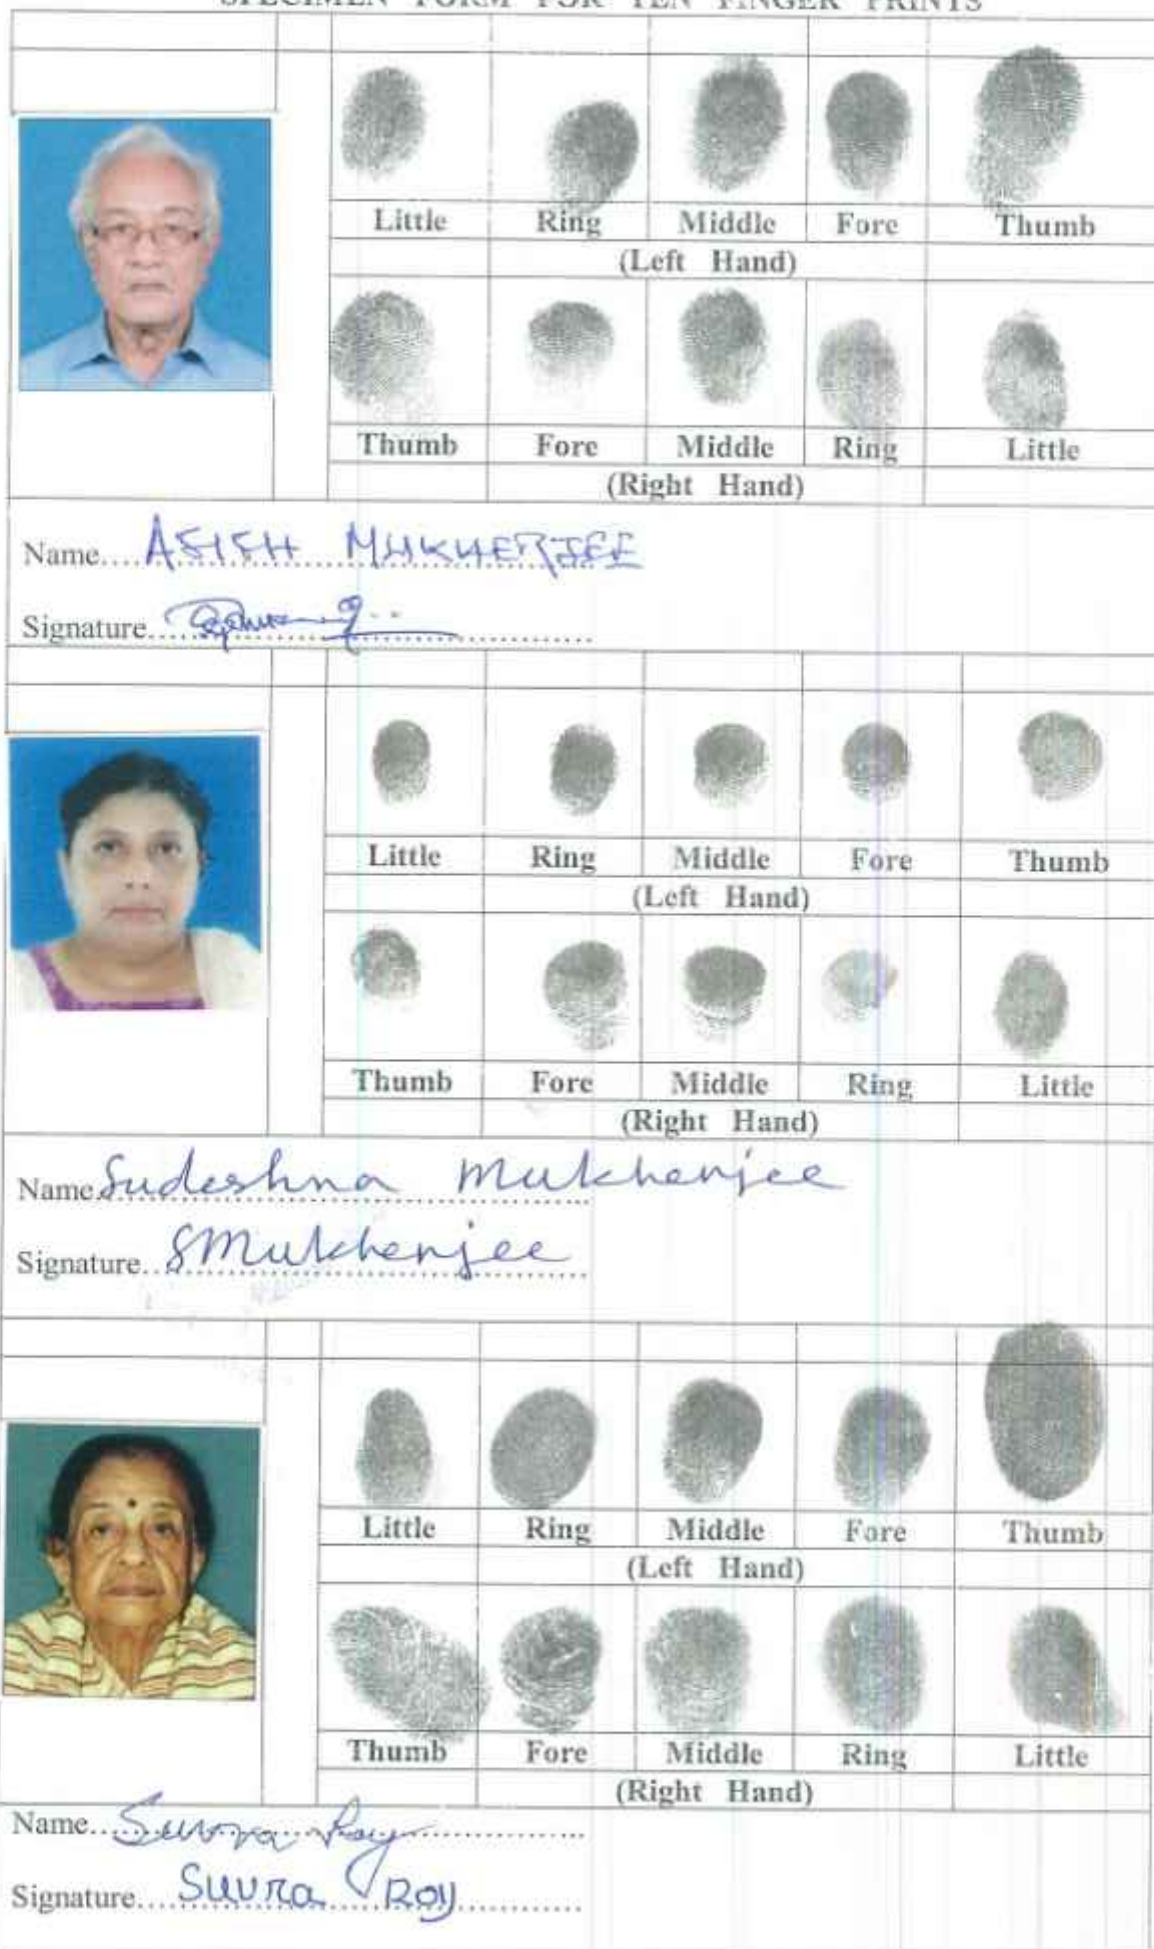 SPECIMEN FORM FOR TEN FINGER PRINTS
Little Ring Middle Fore Thumb
(Left Hand)
Thumb Fore Middle Ring Little
(Right Hand)
Name.... ASISH MUKHERJEE
Signature....
Little Ring Middle Fore Thumb
(Left Hand)
Thumb Fore Middle Ring Little
(Right Hand)
Name Sudeshna Mukherjee
Signature.. SMukherjee
Little Ring Middle Fore Thumb
(Left Hand)
Thumb Fore Middle Ring Little
(Right Hand)
Name.... Suvra Roy
Signature.... Suvra Roy